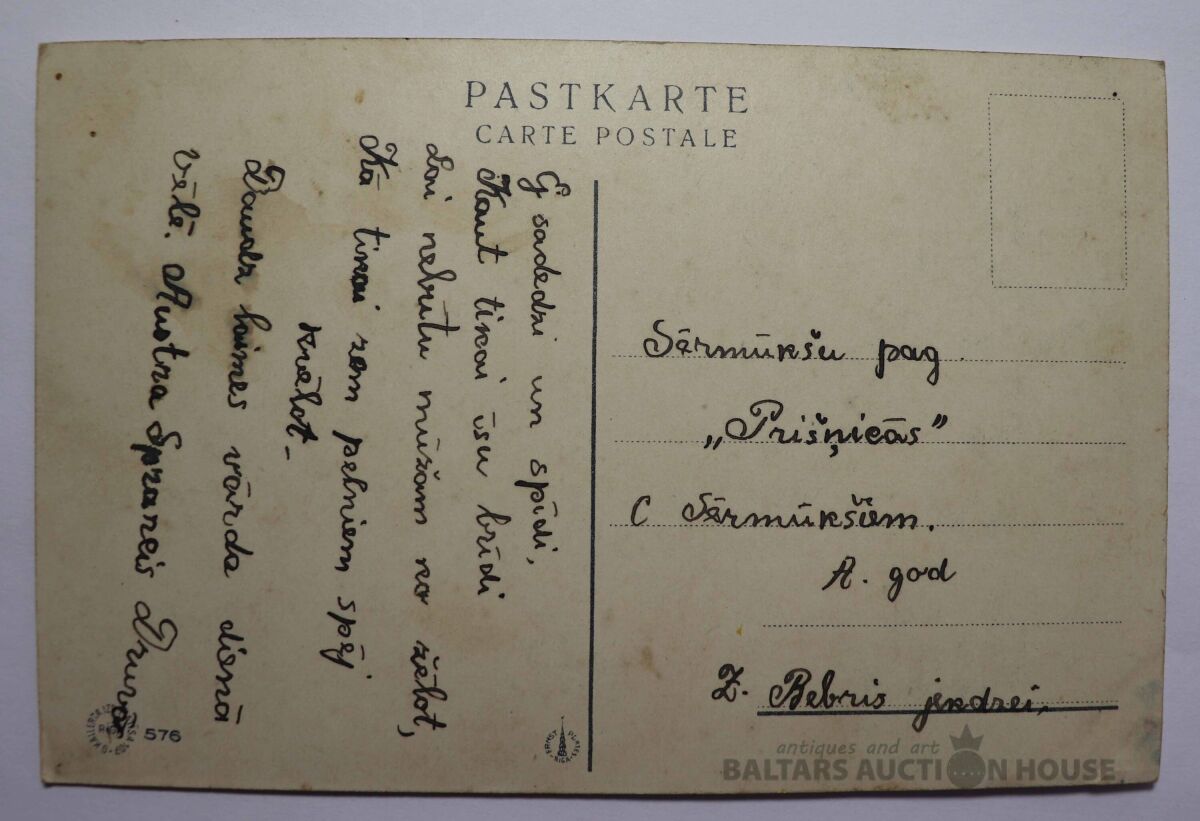 PASTKARTE
CARTE POSTALE
G sadedzi un spīdi,
Kaut tikai īsu brīdi
Lai nebūtu mūžam ko žēlot,
Kā tikai zem pelniem spēj
kvēlot-
Daudz laimes vārda dienā
vēlē. Austra Sprancis Druva
Sērmūkšu pag.
„Prišņicās”
C Sērmūkšiem.
A. god
Z. Bebris jekdzei.
576
ERNST PLATES RIGA
antiques and art
BALTARS AUCTION HOUSE